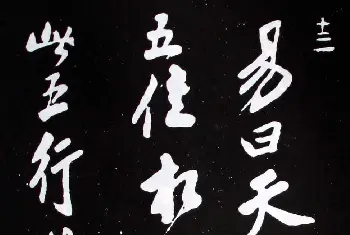 十二
易曰天
五位相
此五行